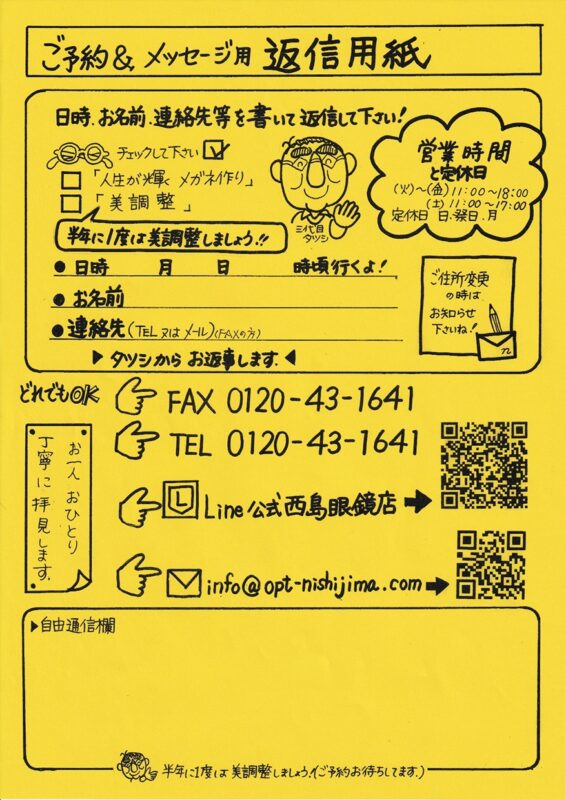 ご予約&メッセージ用 返信用紙
日時、お名前、連絡先等を書いて返信して下さい!
チェックして下さい
「人生が輝く メガネ作り」
「美調整」
半年に1度は美調整しましょう!!
三代目
タツシ
営業時間
と定休日
(火)〜(金)11:00〜18:00
(土)11:00〜17:00
定休日 日、祭日、月
●日時 月 日 時頃行くよ!
●お名前
●連絡先(TEL又はメール)(FAXの方)
▶タツシから お返事します。◀
ご住所変更
の時は
お知らせ
下さいね!
どれでもOK
FAX 0120-43-1641
TEL 0120-43-1641
Line公式西島眼鏡店
info@opt-nishijima.com
お一人 おひとり
丁寧に拝見します。
▶自由通信欄
半年に1度は美調整しましょう!(ご予約お待ちしてます。)